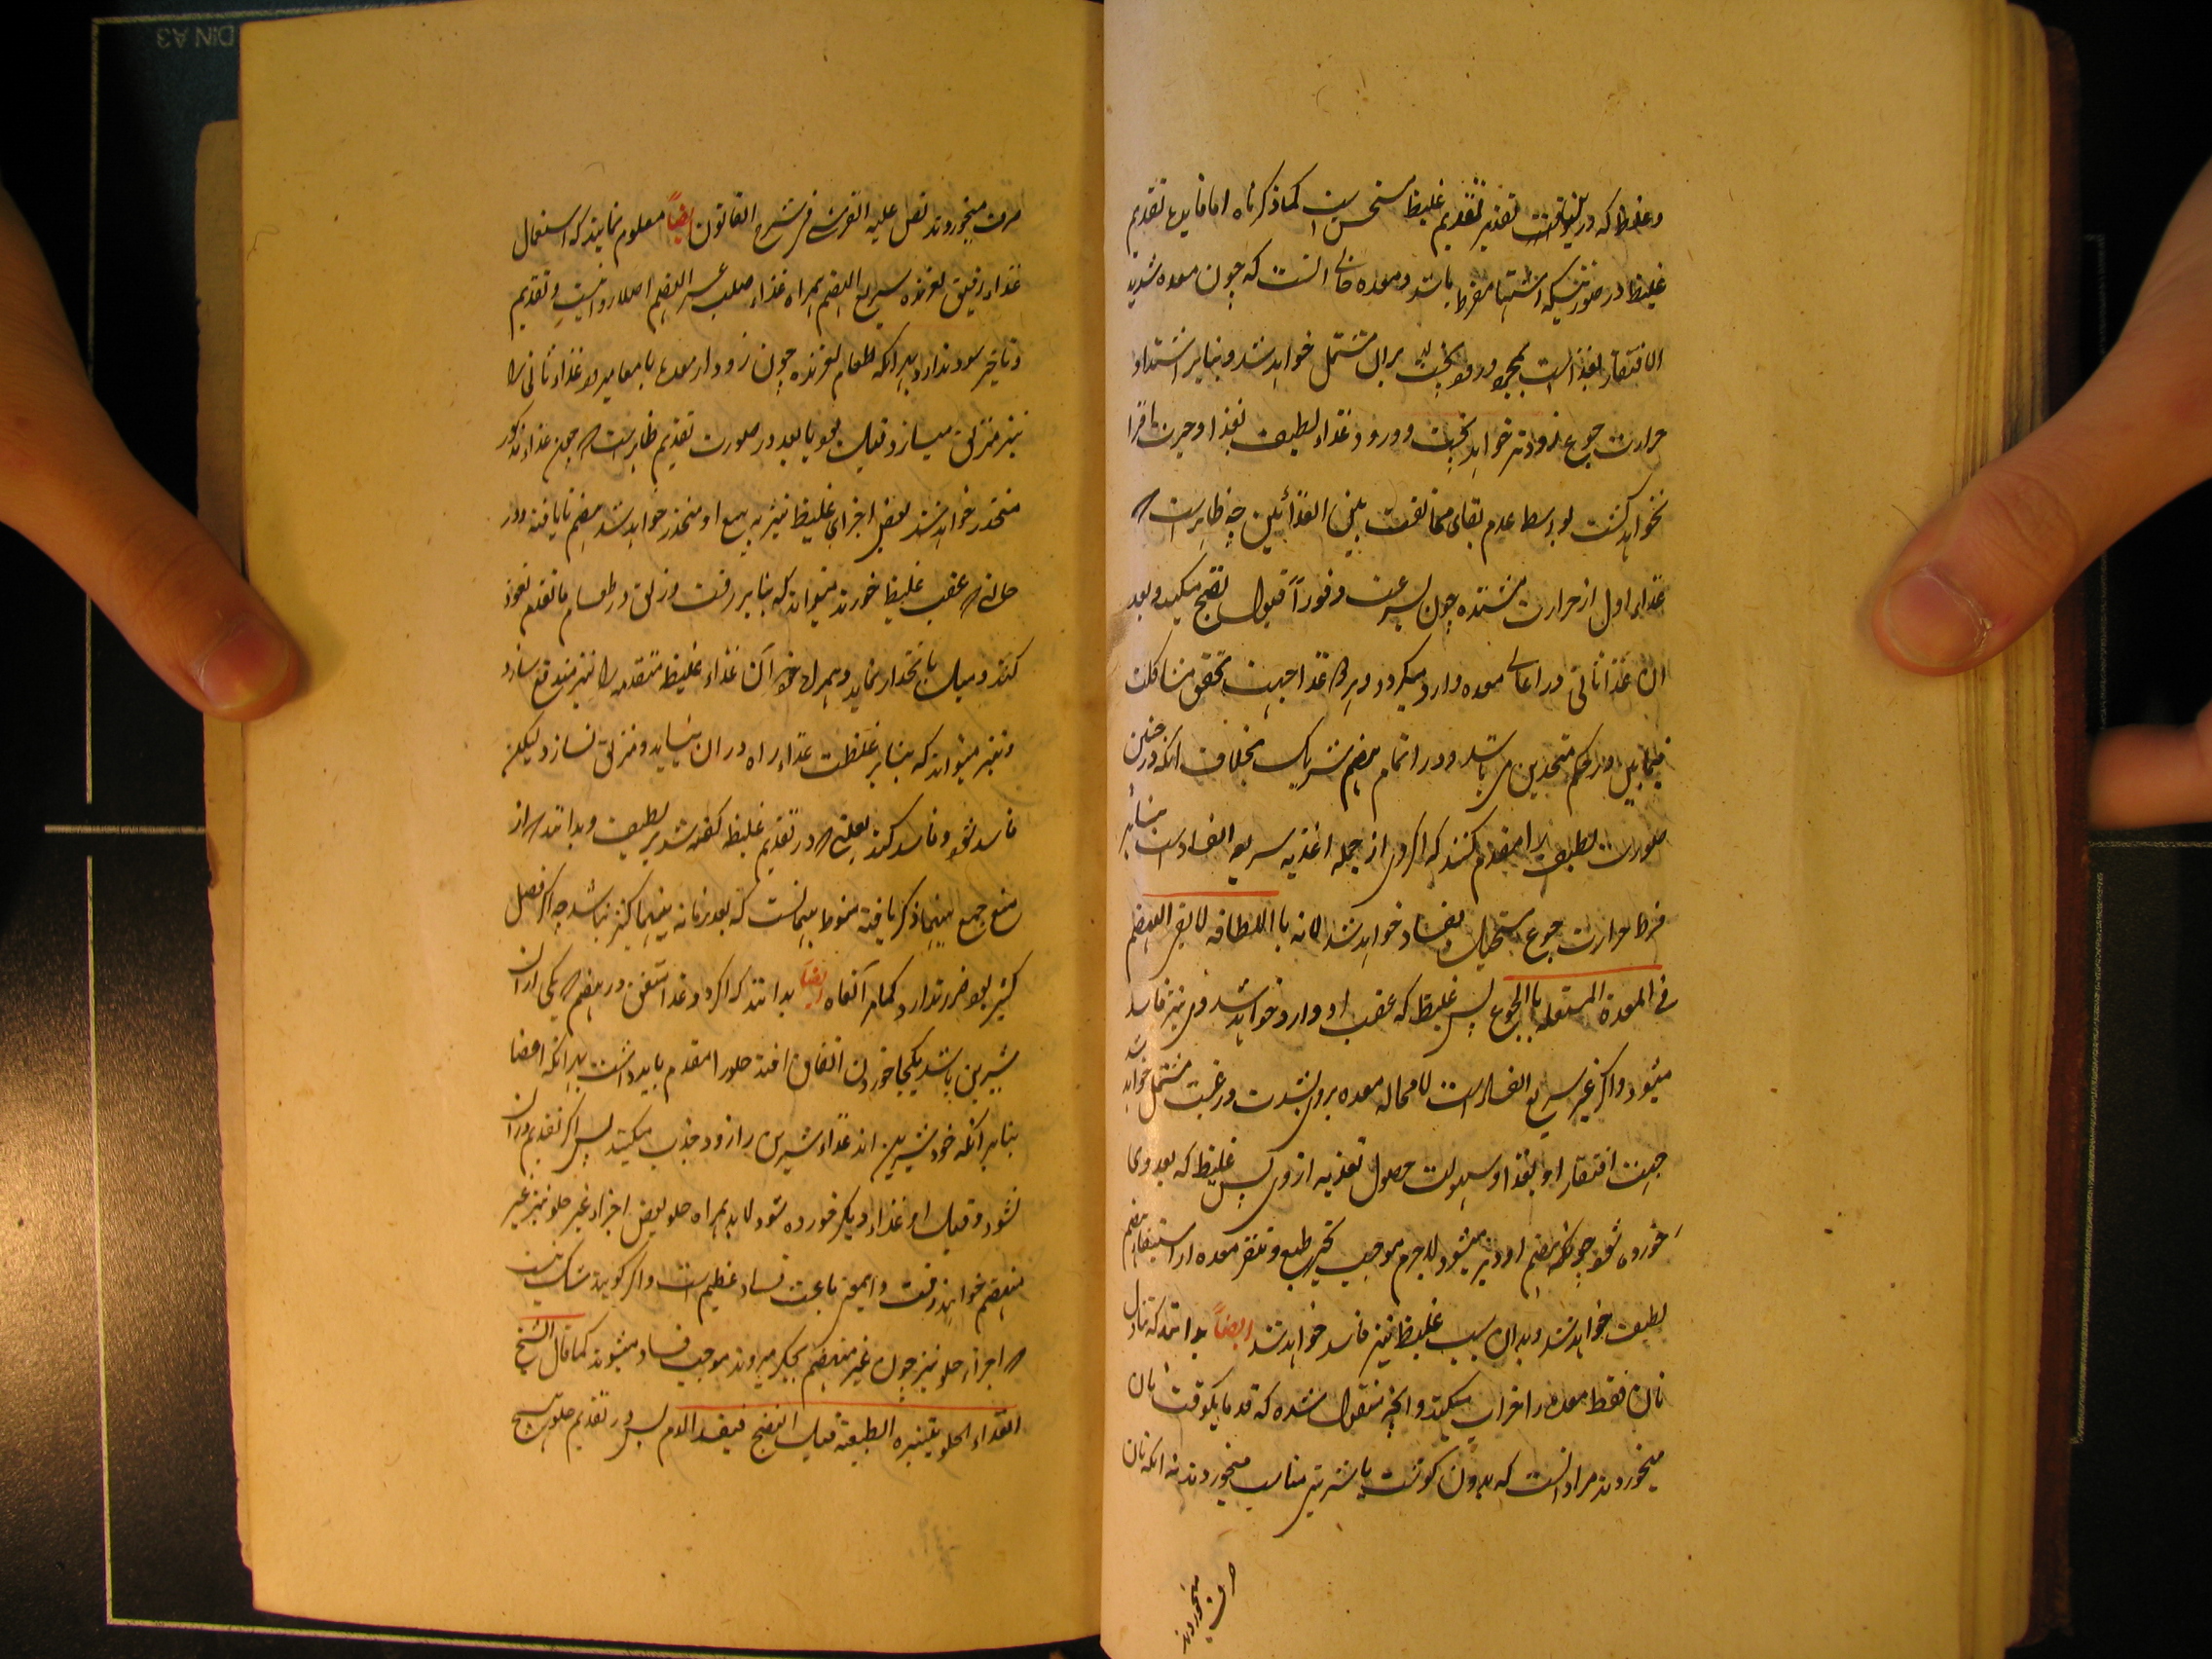 وغلیظ که درینوقت تقدیر تقدیم غلیظ مستحسن است کما ذکرناه اما فایده تقدیم
غلیظ در صورتیکه اشتها مفرط باشد و معده خالی انست که چون معده شدید
الافتقار بغذا است بمجرد ورود بخت برآن مشتمل خواهد شد و بنابر اشتداد
حرارت جوع زودتر خواهد بخت و ورود غذاء لطیف بغذا و حیرت افزا
نخواهد گشت بواسطه عدم بقای مخالفت بین الغذائین چه ظاهر است که
غذای اول از حرارت مشتده چون بسرعت و فوراً قبول نضج میکند و بعد
ان غذا ثانی در اعالی معده وارد میگردد و هر دو غذا جهت تحقق مشاکلت
فیمابین در حکم متحدین می باشد و در اتمام هضم شریک بخلاف انکه درچنین
صورت لطیف را مقدم کنند که اگر وی از جمله اغذیه سریع الفساد است بنابر
فرط حرارت جوع مستحیل بفساد خواهد شد لانه بااللطافه لایفی الهضم
فی المعدة المشتعله باالجوع پس غلیظ که عقب او وارد خواهد شد وی نیز فاسد
میشود واگر غیر سریع الفساد است لامحاله معده بروی بشدت و رغبت مشتمل خواهد شد
جهت افتقار او بغذا و سهولت حصول تغذیه از وی پس غلیظ که بعد وی
خورده شود چونکه هضم او دیر میشود لاجرم موجب تحیر طبع و تنفر معده از استیفاء هضم
لطیف خواهد شد و بدان سبب غلیظ نیز فاسد خواهد شد ایضاً بدانند که تناول
نان فقط معده را خراب میکند و انچه منقول شده که قدما یکوقت نان
میخوردند مراد انست که بدون گوشت یا شربتی مناسب میخوردند نه انکه نان
صرف میخوردند
صرف میخوردند نص علیه القرشی فی شرح القانون ایضاً معلوم نمایند که استعمال
غذاء رقیق لغزنده سریع الهضم همراه غذاء صلب عسر الهضم اصلا روا نیست و تقدیم
و تاخیر سود ندارد بهر انکه طعام لغزنده چون زود از معده بامعا میرود غذاء ثانی را
نیز منزلق میسازد قبل بود یا بعد در صورت تقدیم ظاهر است که چون غذاء مذکور
منحدر خواهد شد بعض اجزای غلیظ نیز به تبع او منحدر خواهد شد هضم نایافته و در
حالتی که عقب غلیظ خورند میتواند که بنابر رقت و زلق در طعام ماتقدم نفوذ
کند و میل بانحدار نماید و همراه خود آن غذاء غلیظ متقدمه را نیز مندفع سازد
و نیز میتواند که بنابر غلظت غذاء راه در ان نیابد و منزلق نسازد لیکن
فاسد شود و فاسد کند بعلتی که در تقدیم غلیظ گفته شد بر لطیف و بدانند که از
منع جمع بینهما ذکر یافته منوط بهمانست که بعد زمانه بینهما کثیر نباشد چه اگر فصل
کثیر بود ضرر ندارد کما مر آنفاه ایضاً بدانند که اگر دو غذا متفق در هضم که یکی از ان
شیرین باشد یکجا خوردن اتفاق افتد حلو را مقدم باید داشت بهر انکه اعضا
بنابر انکه خود شیرین اند غذاء شیرین را زود جذب میکنند پس اگر تقدیم در ان
نشود و قبل او غذاء دیگر خورده شود لابد همراه حلو بعض اجزاء غیر حلو نیز غیر
منهضم خواهند رفت و اینمعنی باعث فساد عظیم است و اگر گویند شک نیست
که اجزاء حلو نیز چون غیر منهضم بجگر میروند موجب فساد میشوند کما قال الشیخ
الغذاء الحلو یتبتزه الطبیعة قبل النضج فیفسد الدم پس در تقدیم حلو هیچ